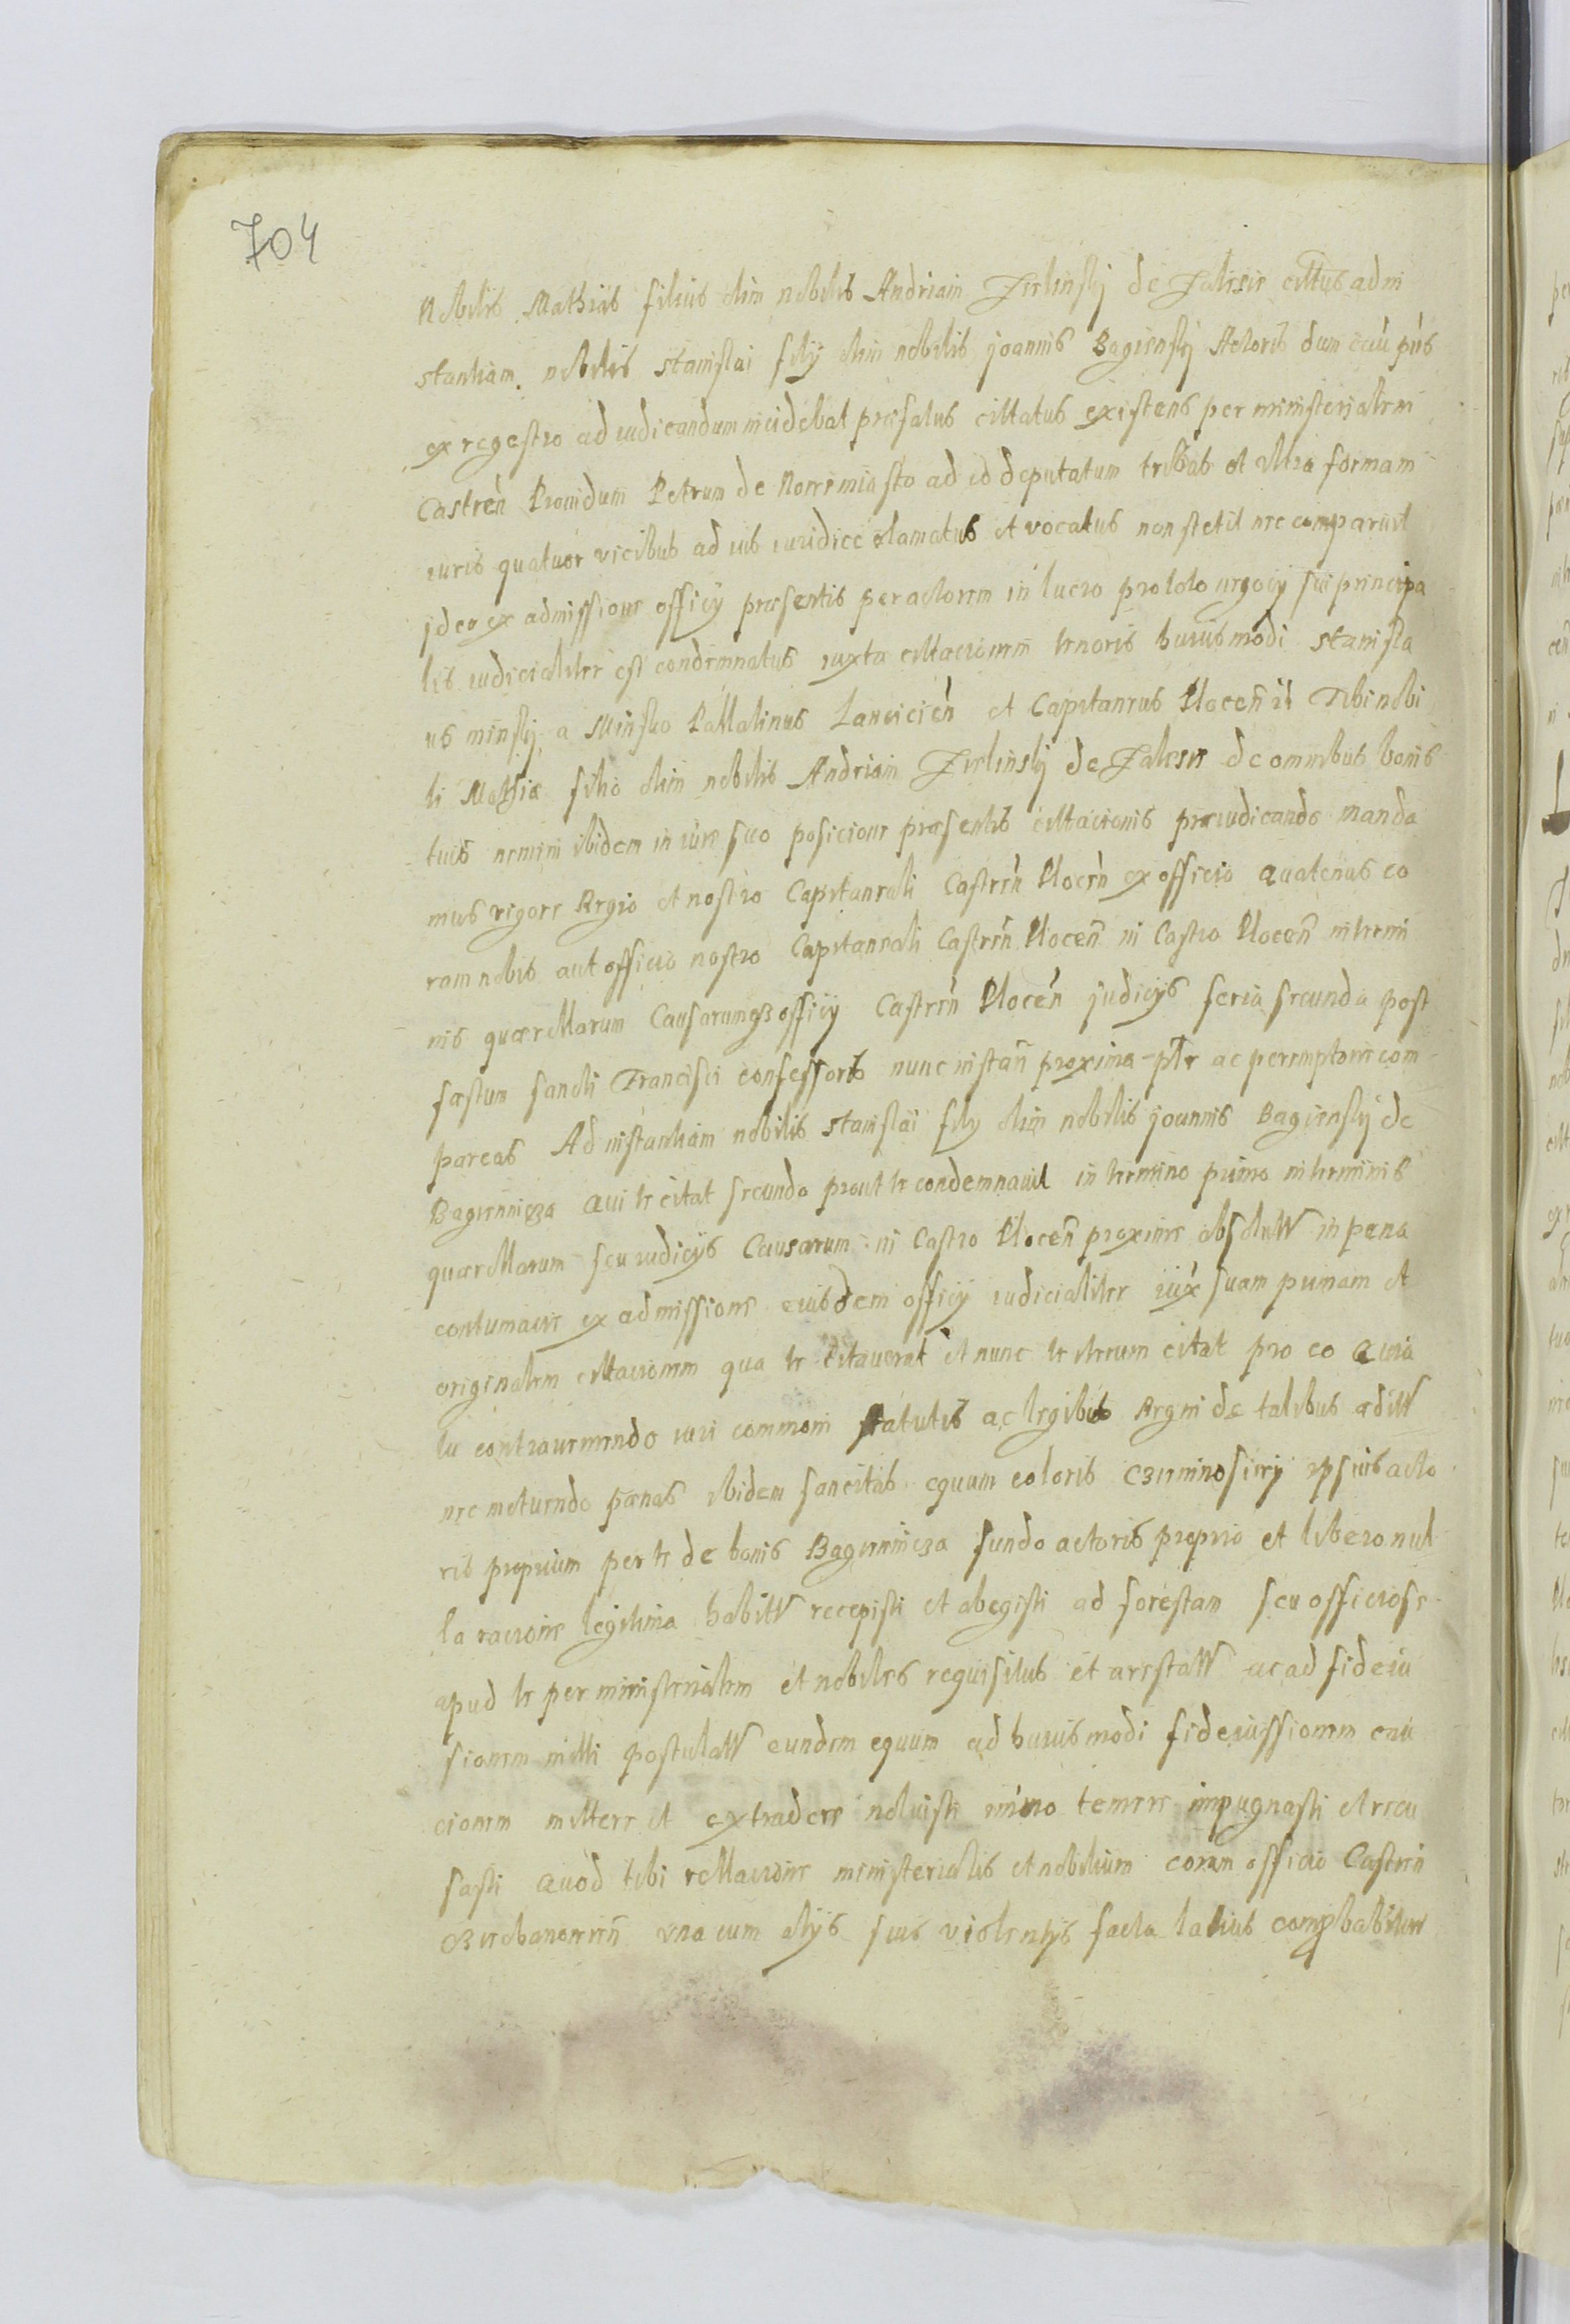 704
Nobilis Mathias filius olim nobilis Andriani Zielinskj de Zalesie cittus ad in
stantiam nobilis Stanislai filij olim nobilis joannis Bagiensky Actoris dum cau pns
ex regestro ad iudicandum incidebat præfatus cittatus existens per ministerialem
Castren Prouidum Petrum de Nowemiasto ad id deputatum tribus et vltra formam
iuris quatuor vicibus ad ius iuridice clamatus et vocatus non stetit nec comparuit
jdeo ex admissione officij præsentis per actorem in lucro pro toto negocij sui principa
lis iudicialiter est condemnatus iuxta cittacionem tenoris huiusmodi Stanisla
us minskj a Minsko Pallatinus Lancicien et Capitaneus Plocen Tibi nobi
li Mathiæ filio olim nobilis Andriani Zielinskj de Zalesie de omnibus bonis
tuis nemini ibidem in iure suo posicione præsentis cittacionis præiudicando manda
mus vigore Regio et nostro Capitaneali Castren Plocen ex officio Quatenus co
ram nobis aut officio nostro Capitaneali Castren Plocen in Castro Plocen in termi
nis quærellarum Causarumqз officij Castren Plocen judicijs feria secunda post
fæstum sancti Francisci confessoris nunc instan proxima pltr ac peremptorie com
pareas Ad instantiam nobilis Stanislai filij olim nobilis joannis Bagiensky de
Bagiennicza Qui te citat secundo prout te condemnauit in termino primo in terminis
quærellarum seu iudicijs Causarum in Castro Plocen proxime obsolutt in pena
contumacie ex admissione eiusdem officij iudicialiter iux suam primam et
originalem cittacionem qua te citauerat et nunc te iterum citat pro eo Quia
tu contraueniendo iuri commoni statutis ac legibus Regni de talibus æditt
nec metuendo pænas ibidem sancitas equum coloris czieminosiwy ipsius acto
ris proprium per te de bonis Bagiennicza fundo actoris proprio et libero nul
la racione legitima habitt recepisti et abegisti ad forestam seu officiose
apud te per ministerialem et nobiles requisitus et arestatt ac ad fideiu
sionem mitti postulatt eundem equum ad huiusmodi fideiussionem cau
cionem mittere et extradere noluisti immo temere impugnasti et recu
sasti Quod tibi rellacione ministerialis et nobilium coram officio Castren
Cziechanowien vna cum alijs suis violentijs facta latius comprobabitur